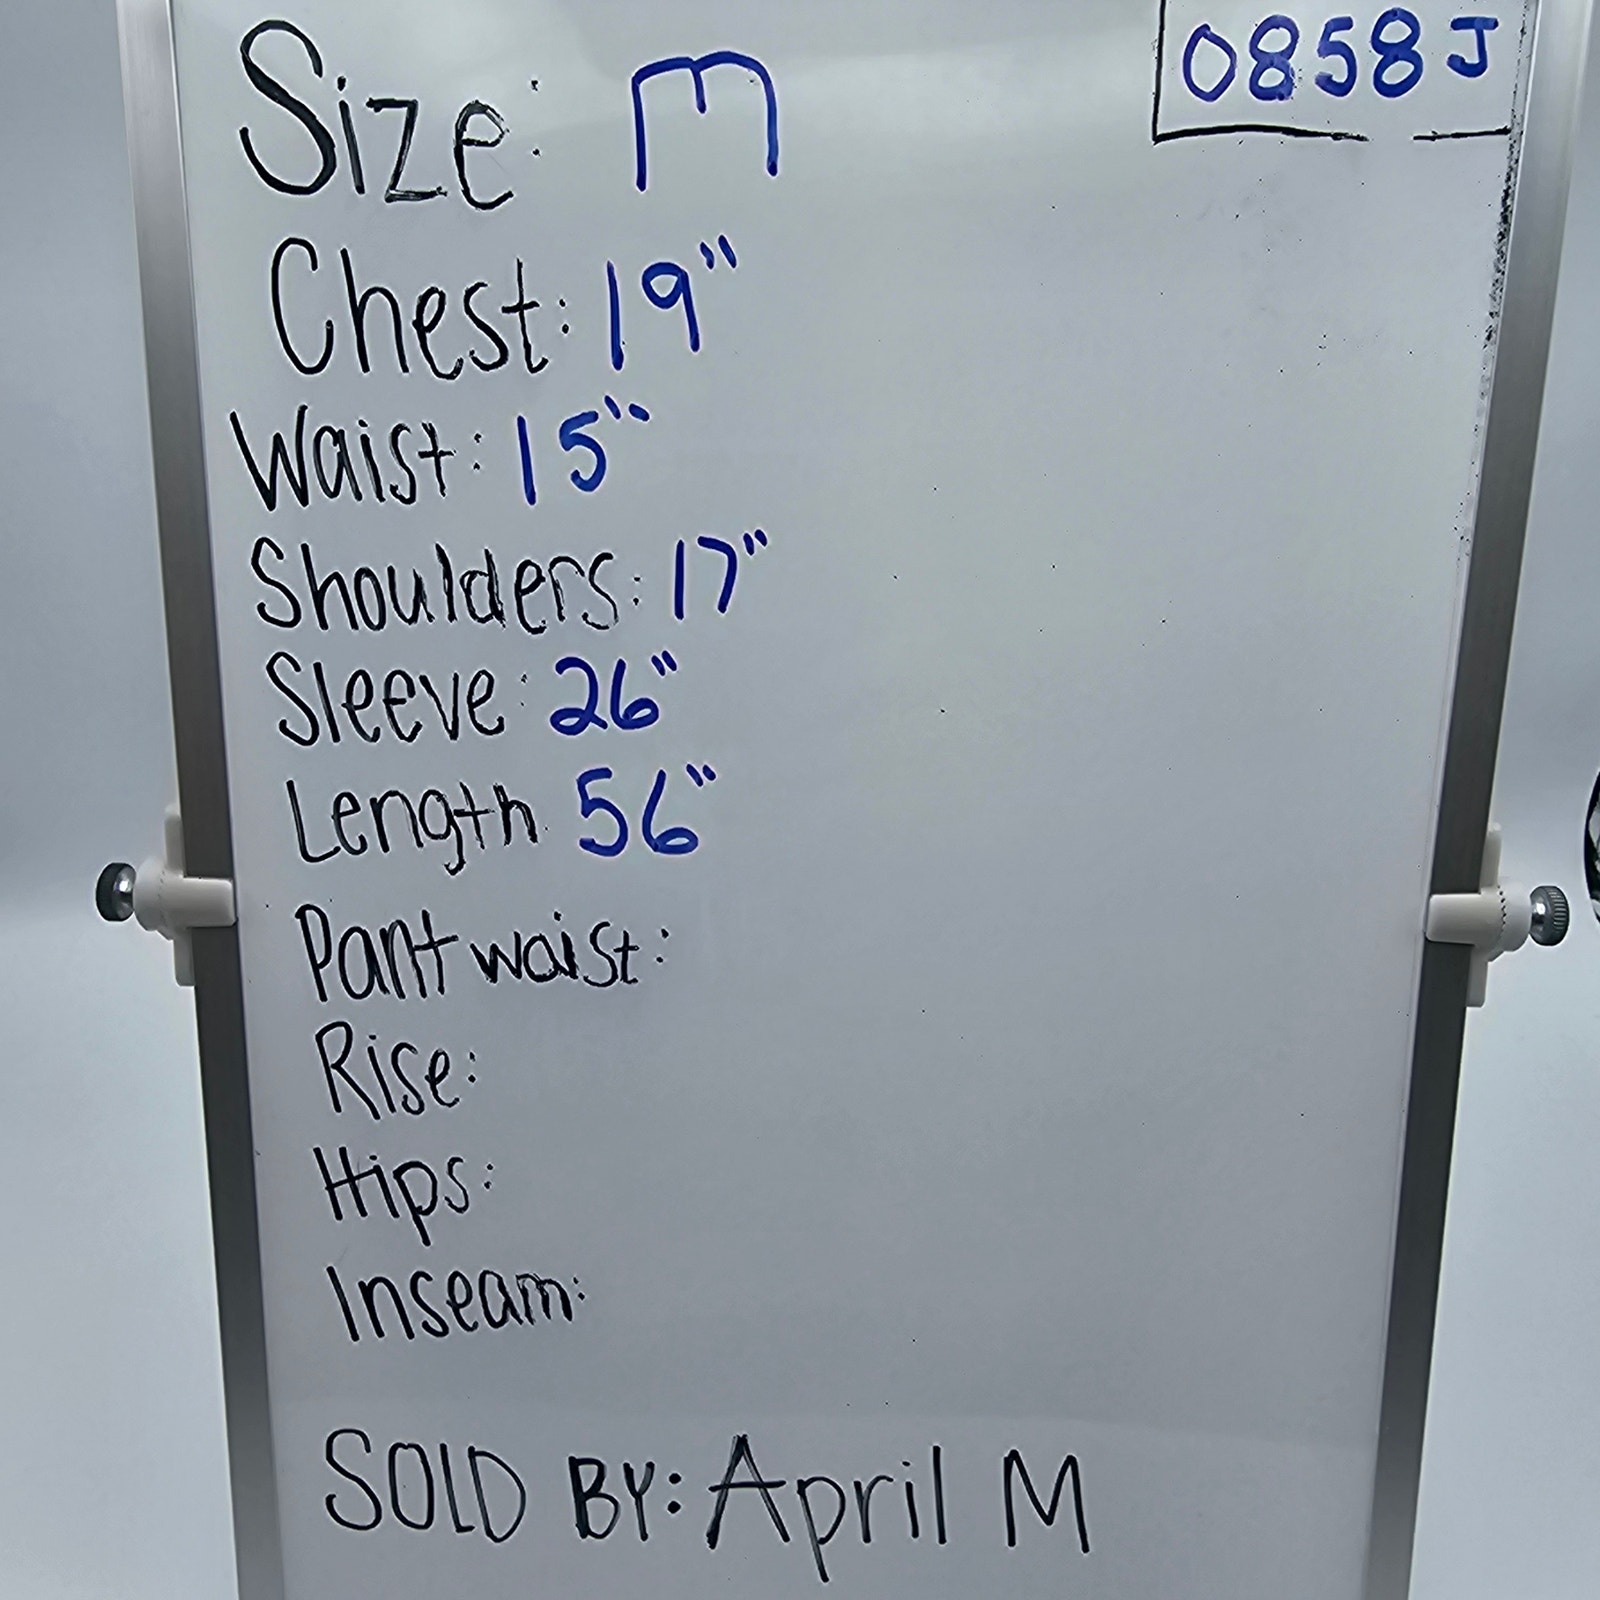 0858J
Size: M
Chest: 19"
Waist: 15"
Shoulders: 17"
Sleeve: 26"
Length 56"
Pant waist:
Rise:
Hips:
Inseam:
SOLD BY: April M